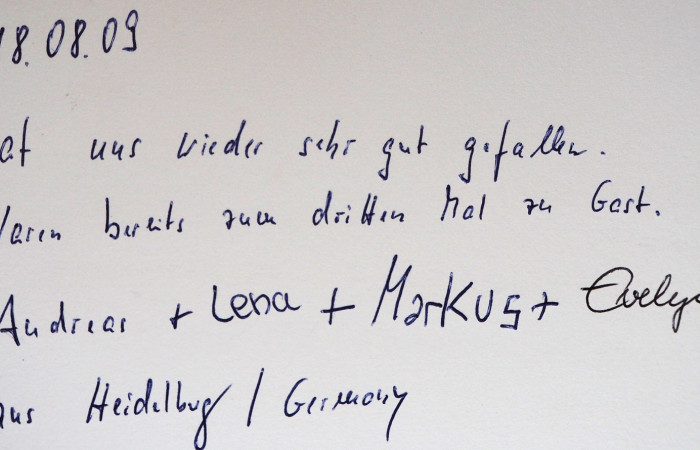 18.08.09
at uns wieder sehr gut gefallen.
Waren bereits zum dritten Mal zu Gast.
Andreas + Lena + Markus + Evelyn
aus Heidelberg / Germany